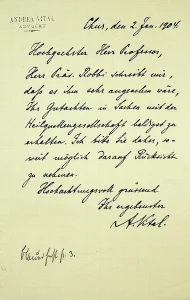 ANDREA VITAL
ADVOCAT
Chur, den 2. Jan. 1904.
Hochgeehrter Herr Professor,
Herr Präs. Robbi schreibt mir,
dass es ihm sehr angenehm wäre,
Ihr Gutachten in Sachen mit der
Heilquellengesellschaft baldigst zu
erhalten. Ich bitte Sie daher, so-
weit möglich darauf Rücksicht
zu nehmen.
Hochachtungsvoll grüssend
Ihr ergebenster
A. Vital.